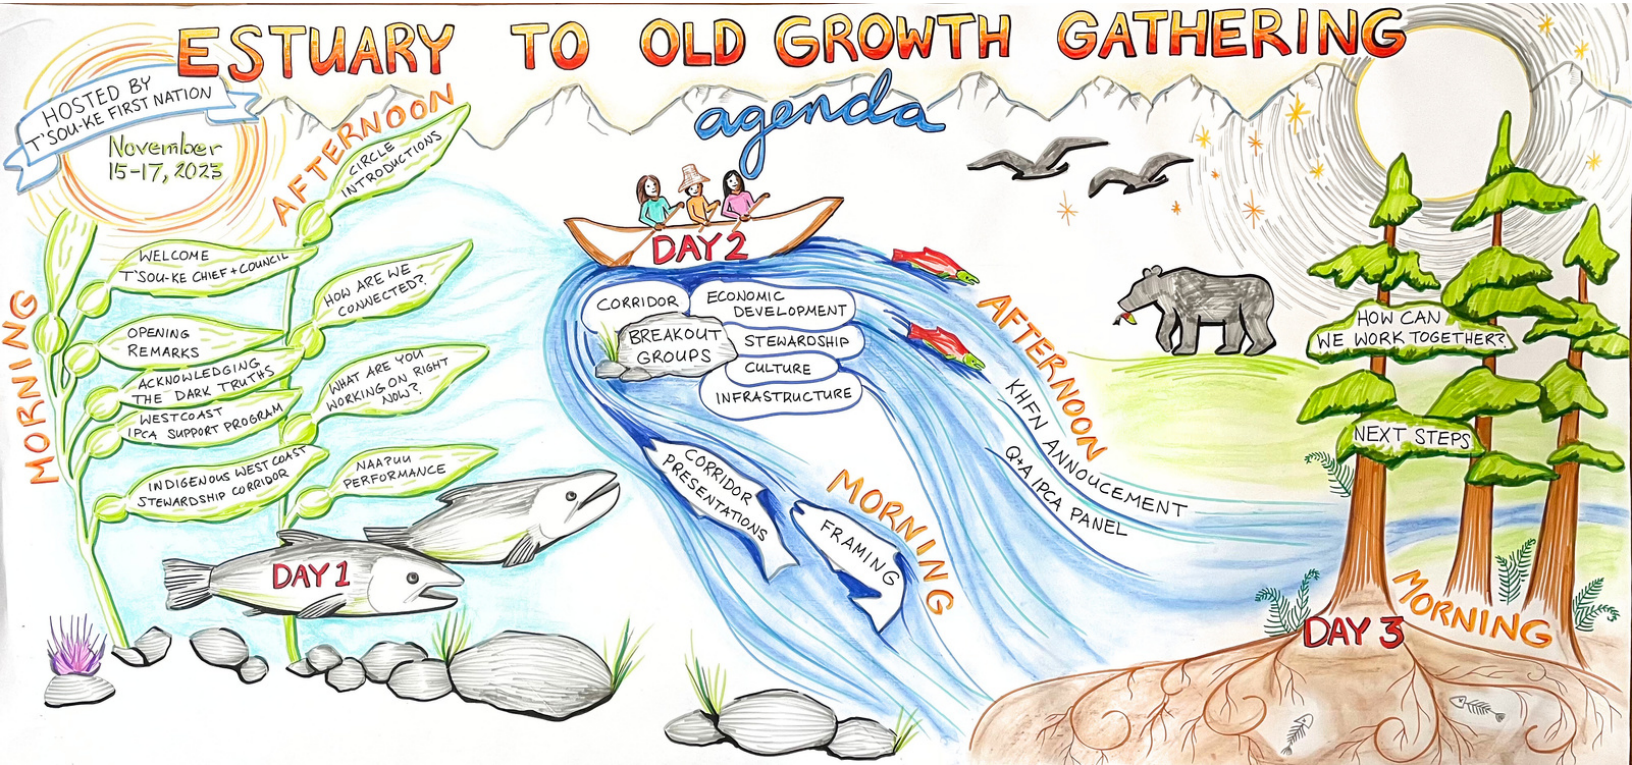 ESTUARY TO OLD GROWTH GATHERING
agenda
HOSTED BY
T'SOU-KE FIRST NATION
November
15-17, 2023
DAY 1
MORNING
WELCOME
T'SOU-KE CHIEF + COUNCIL
OPENING
REMARKS
ACKNOWLEDGING
THE DARK TRUTHS
WESTCOAST
IPCA SUPPORT PROGRAM
INDIGENOUS WEST COAST
STEWARDSHIP CORRIDOR
AFTERNOON
CIRCLE
INTRODUCTIONS
HOW ARE WE
CONNECTED?
WHAT ARE YOU
WORKING ON RIGHT
NOW?
NAAʔUU
PERFORMANCE
DAY 2
MORNING
FRAMING
CORRIDOR
PRESENTATIONS
BREAKOUT
GROUPS
CORRIDOR
ECONOMIC
DEVELOPMENT
STEWARDSHIP
CULTURE
INFRASTRUCTURE
AFTERNOON
KHFN ANNOUCEMENT
Q+A IPCA PANEL
DAY 3
MORNING
HOW CAN
WE WORK TOGETHER?
NEXT STEPS